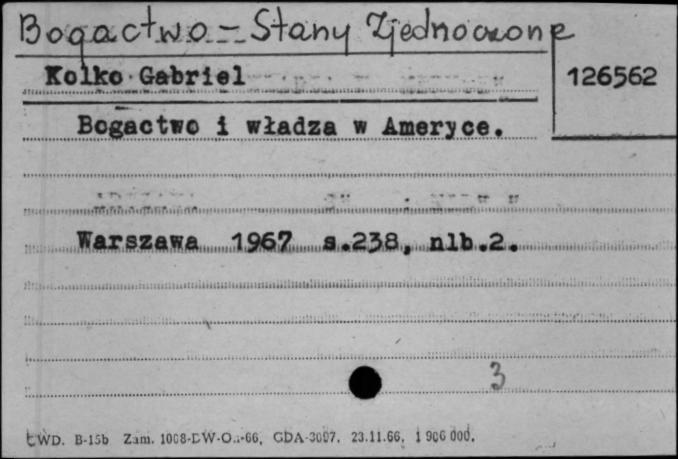 Bogactwo - Stany Zjednoczone
Kolko Gabriel
126562
Bogactwo i władza w Ameryce.
Warszawa 1967 s.238, nlb.2.
3
CWD. B-15b Zam. 1008-DW-O.-66, GDA-3007. 23.11.66. 1 906 000.